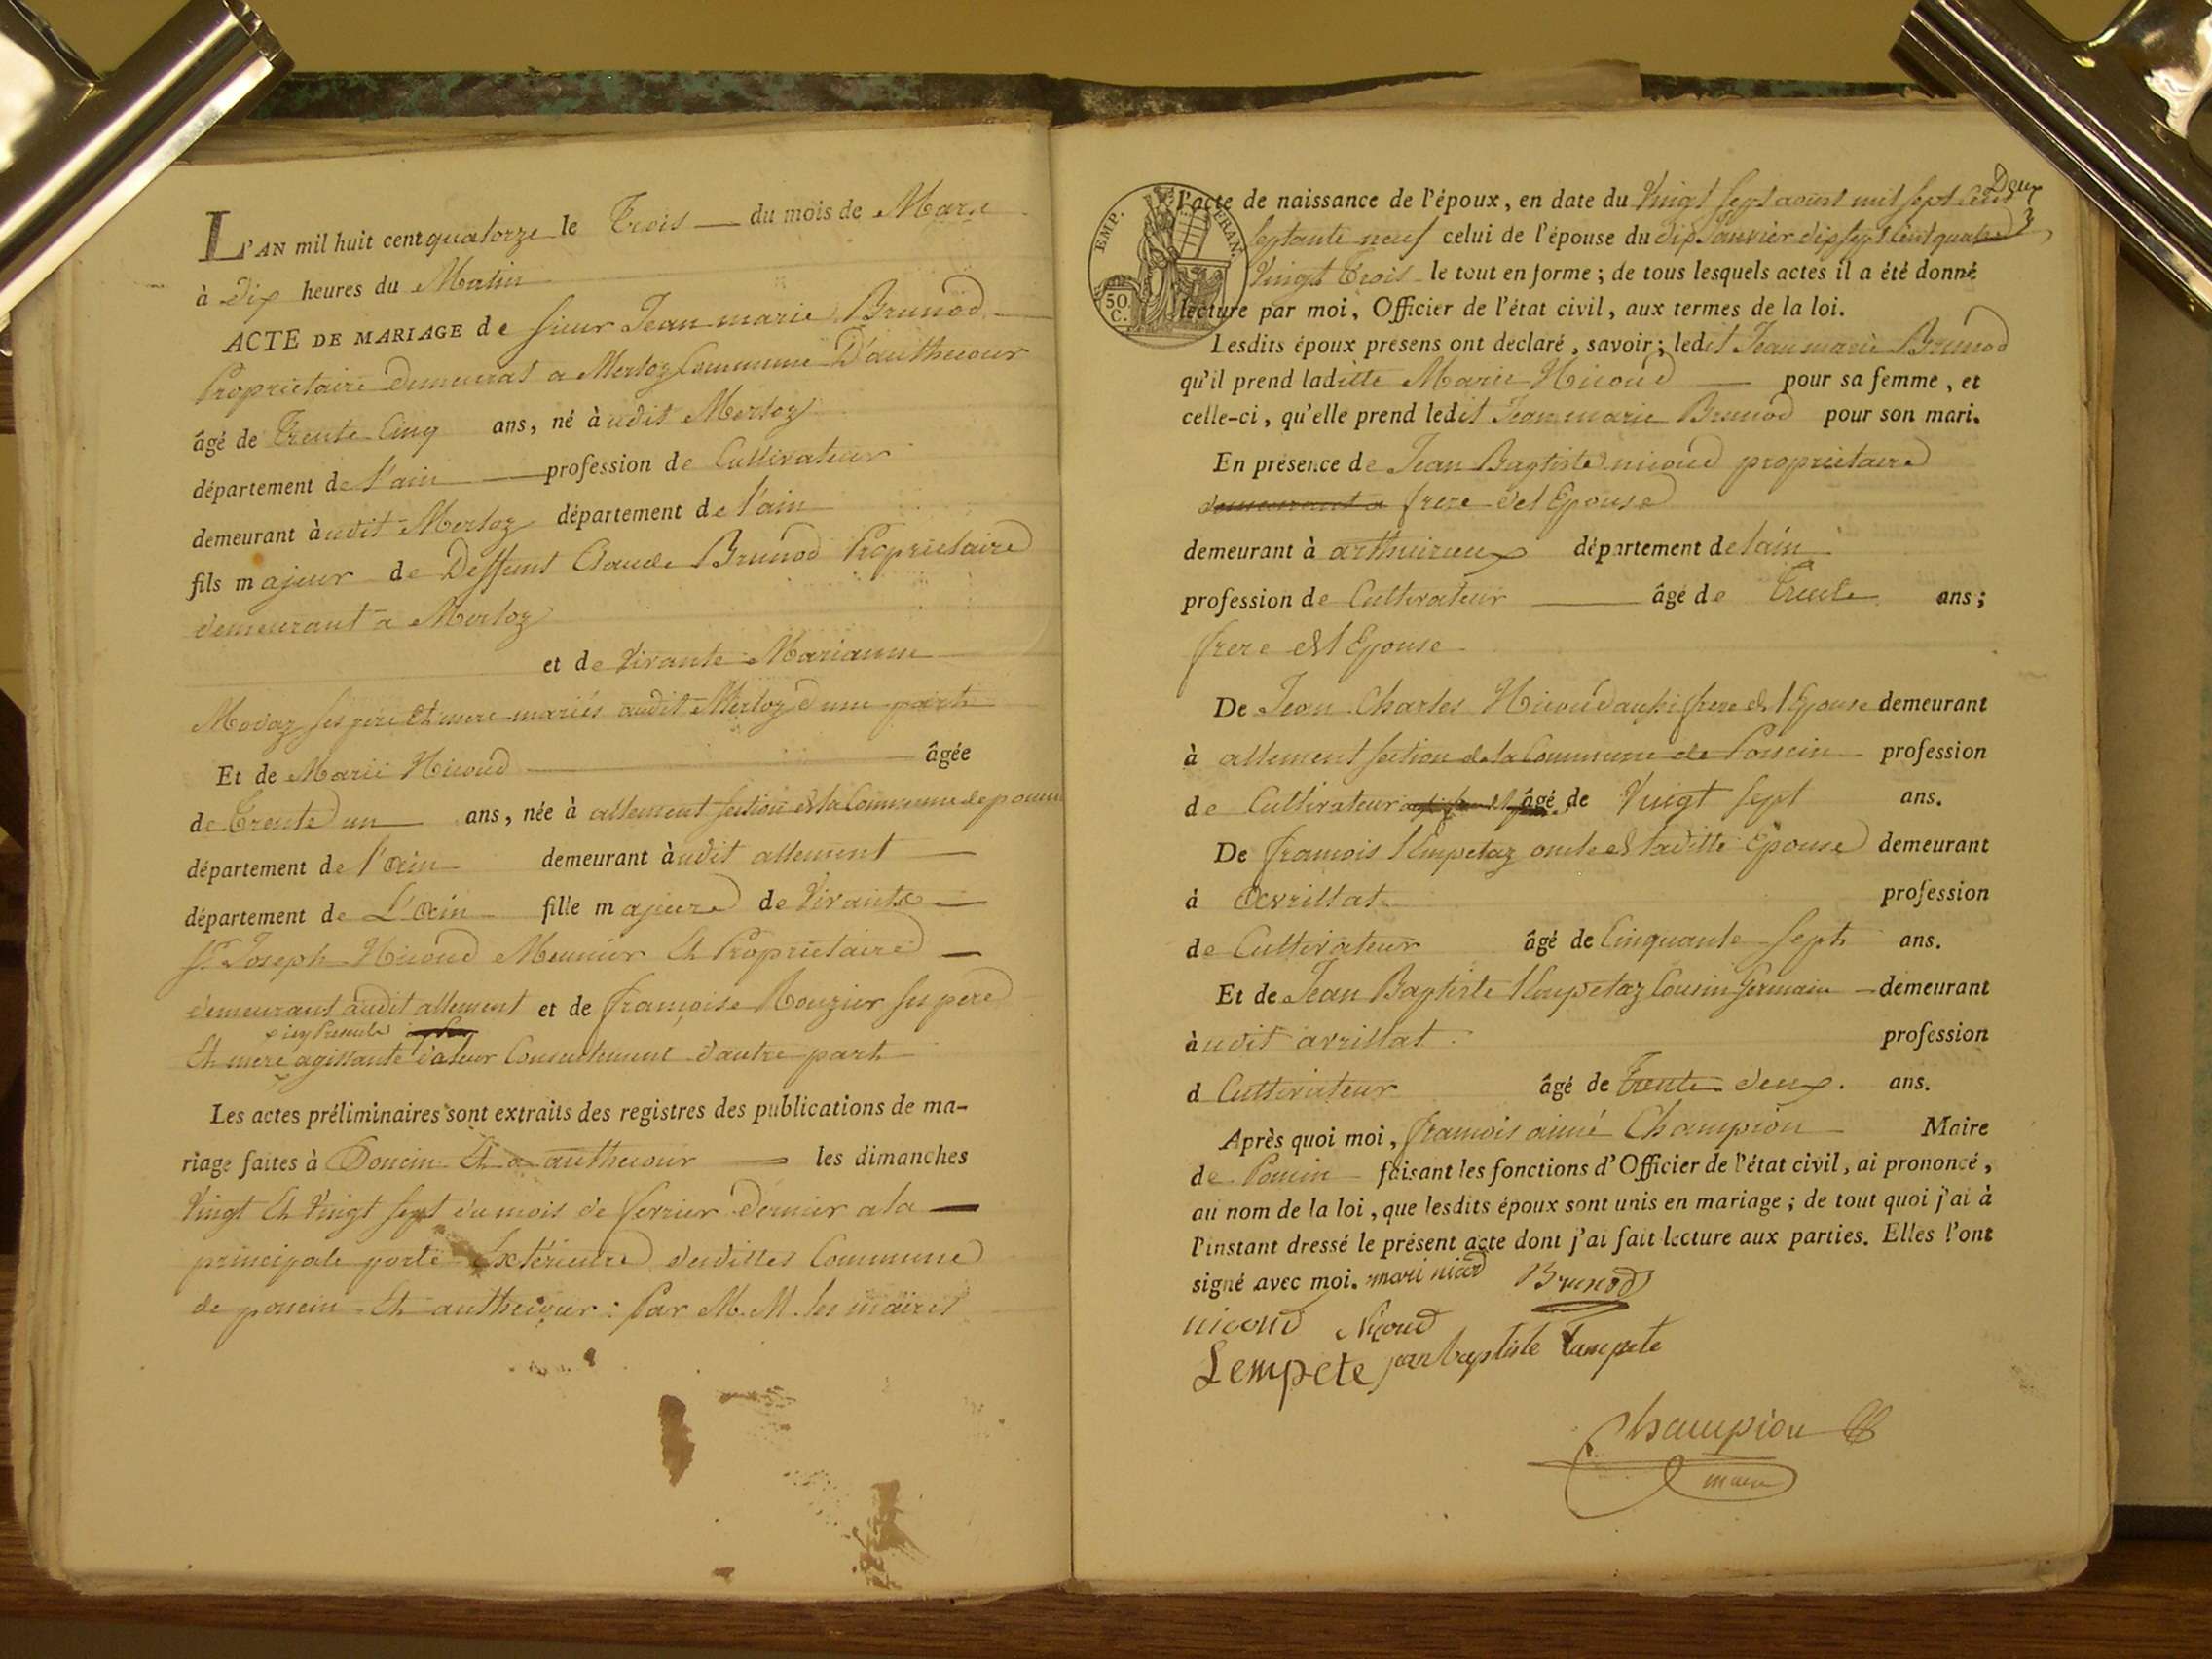 L'AN mil huit cent quatorze le Trois du mois de Mars
à Dix heures du Matin
ACTE DE MARIAGE de sieur Jean marie Brunod
Propriétaire demeurat a Merloz Commune D'authecour
âgé de Trente Cinq ans, né à udit Merloz
département de l'ain profession de Cultivateur
demeurant à udit Merloz département de l'ain
fils majeur de Deffunt Claude Brunod Propriétaire
demeurant a Merloz
et de vivante Marianne
Modaz ses père et mere mariés audit Merloz d'une part
Et de Marie Nicoud âgée
de Trente un ans, née à allement section de la Commune de poncin
département de l'ain demeurant à udit allement
département de L'ain fille majeure de vivants
Sr Joseph Nicoud Meunier et Propriétaire
demeurant audit allement et de françoise Rouzier ses pere
et mere agissante de leur Consentement d'autre part
Les actes préliminaires sont extraits des registres des publications de ma-
riage faites à Poncin et a authecour les dimanches
vingt et vingt sept du mois de fevrier dernier a la
principale porte Extérieure desdittes Commune
de poncin et authecour : par M. M. les maires
Deux
EMP. FRAN.
50. C.
l'acte de naissance de l'époux, en date du vingt sept aoust mil sept Cent
septante neuf celui de l'épouse du dix Janvier dix sept cent quatre
vingt Trois le tout en forme ; de tous lesquels actes il a été donné
lecture par moi, Officier de l'état civil, aux termes de la loi.
Lesdits époux présens ont déclaré, savoir ; ledit Jean marie Brunod
qu'il prend laditte Marie Nicoud pour sa femme, et
celle-ci, qu'elle prend ledit Jean marie Brunod pour son mari.
En présence de Jean Baptiste nicoud propriétaire
demeurant a frere de l'Epouse
demeurant à département de lain
profession de Cultivateur âgé de Trente ans ;
frere de l'Epouse
De Jean Charles Nicoud aussi frere de l'Epouse demeurant
à allement section de la Commune de Poncin profession
de Cultivateur âgé de vingt sept ans.
De françois Lempetaz oncle de laditte Epouse demeurant
à avrillat profession
de Cultivateur âgé de Cinquante sept ans.
Et de Jean Baptiste Lempetaz Cousin Germain demeurant
à udit avrillat profession
d Cultivateur âgé de Trente deux. ans.
Après quoi moi, françois aimé Champion Maire
de Poncin faisant les fonctions d'Officier de l'état civil, ai prononcé,
au nom de la loi, que lesdits époux sont unis en mariage ; de tout quoi j'ai à
l'instant dressé le présent acte dont j'ai fait lecture aux parties. Elles l'ont
signé avec moi. mari nicod Brunod
nicoud Nicoud
Lempete jean baptiste Lampete
Champion
maire